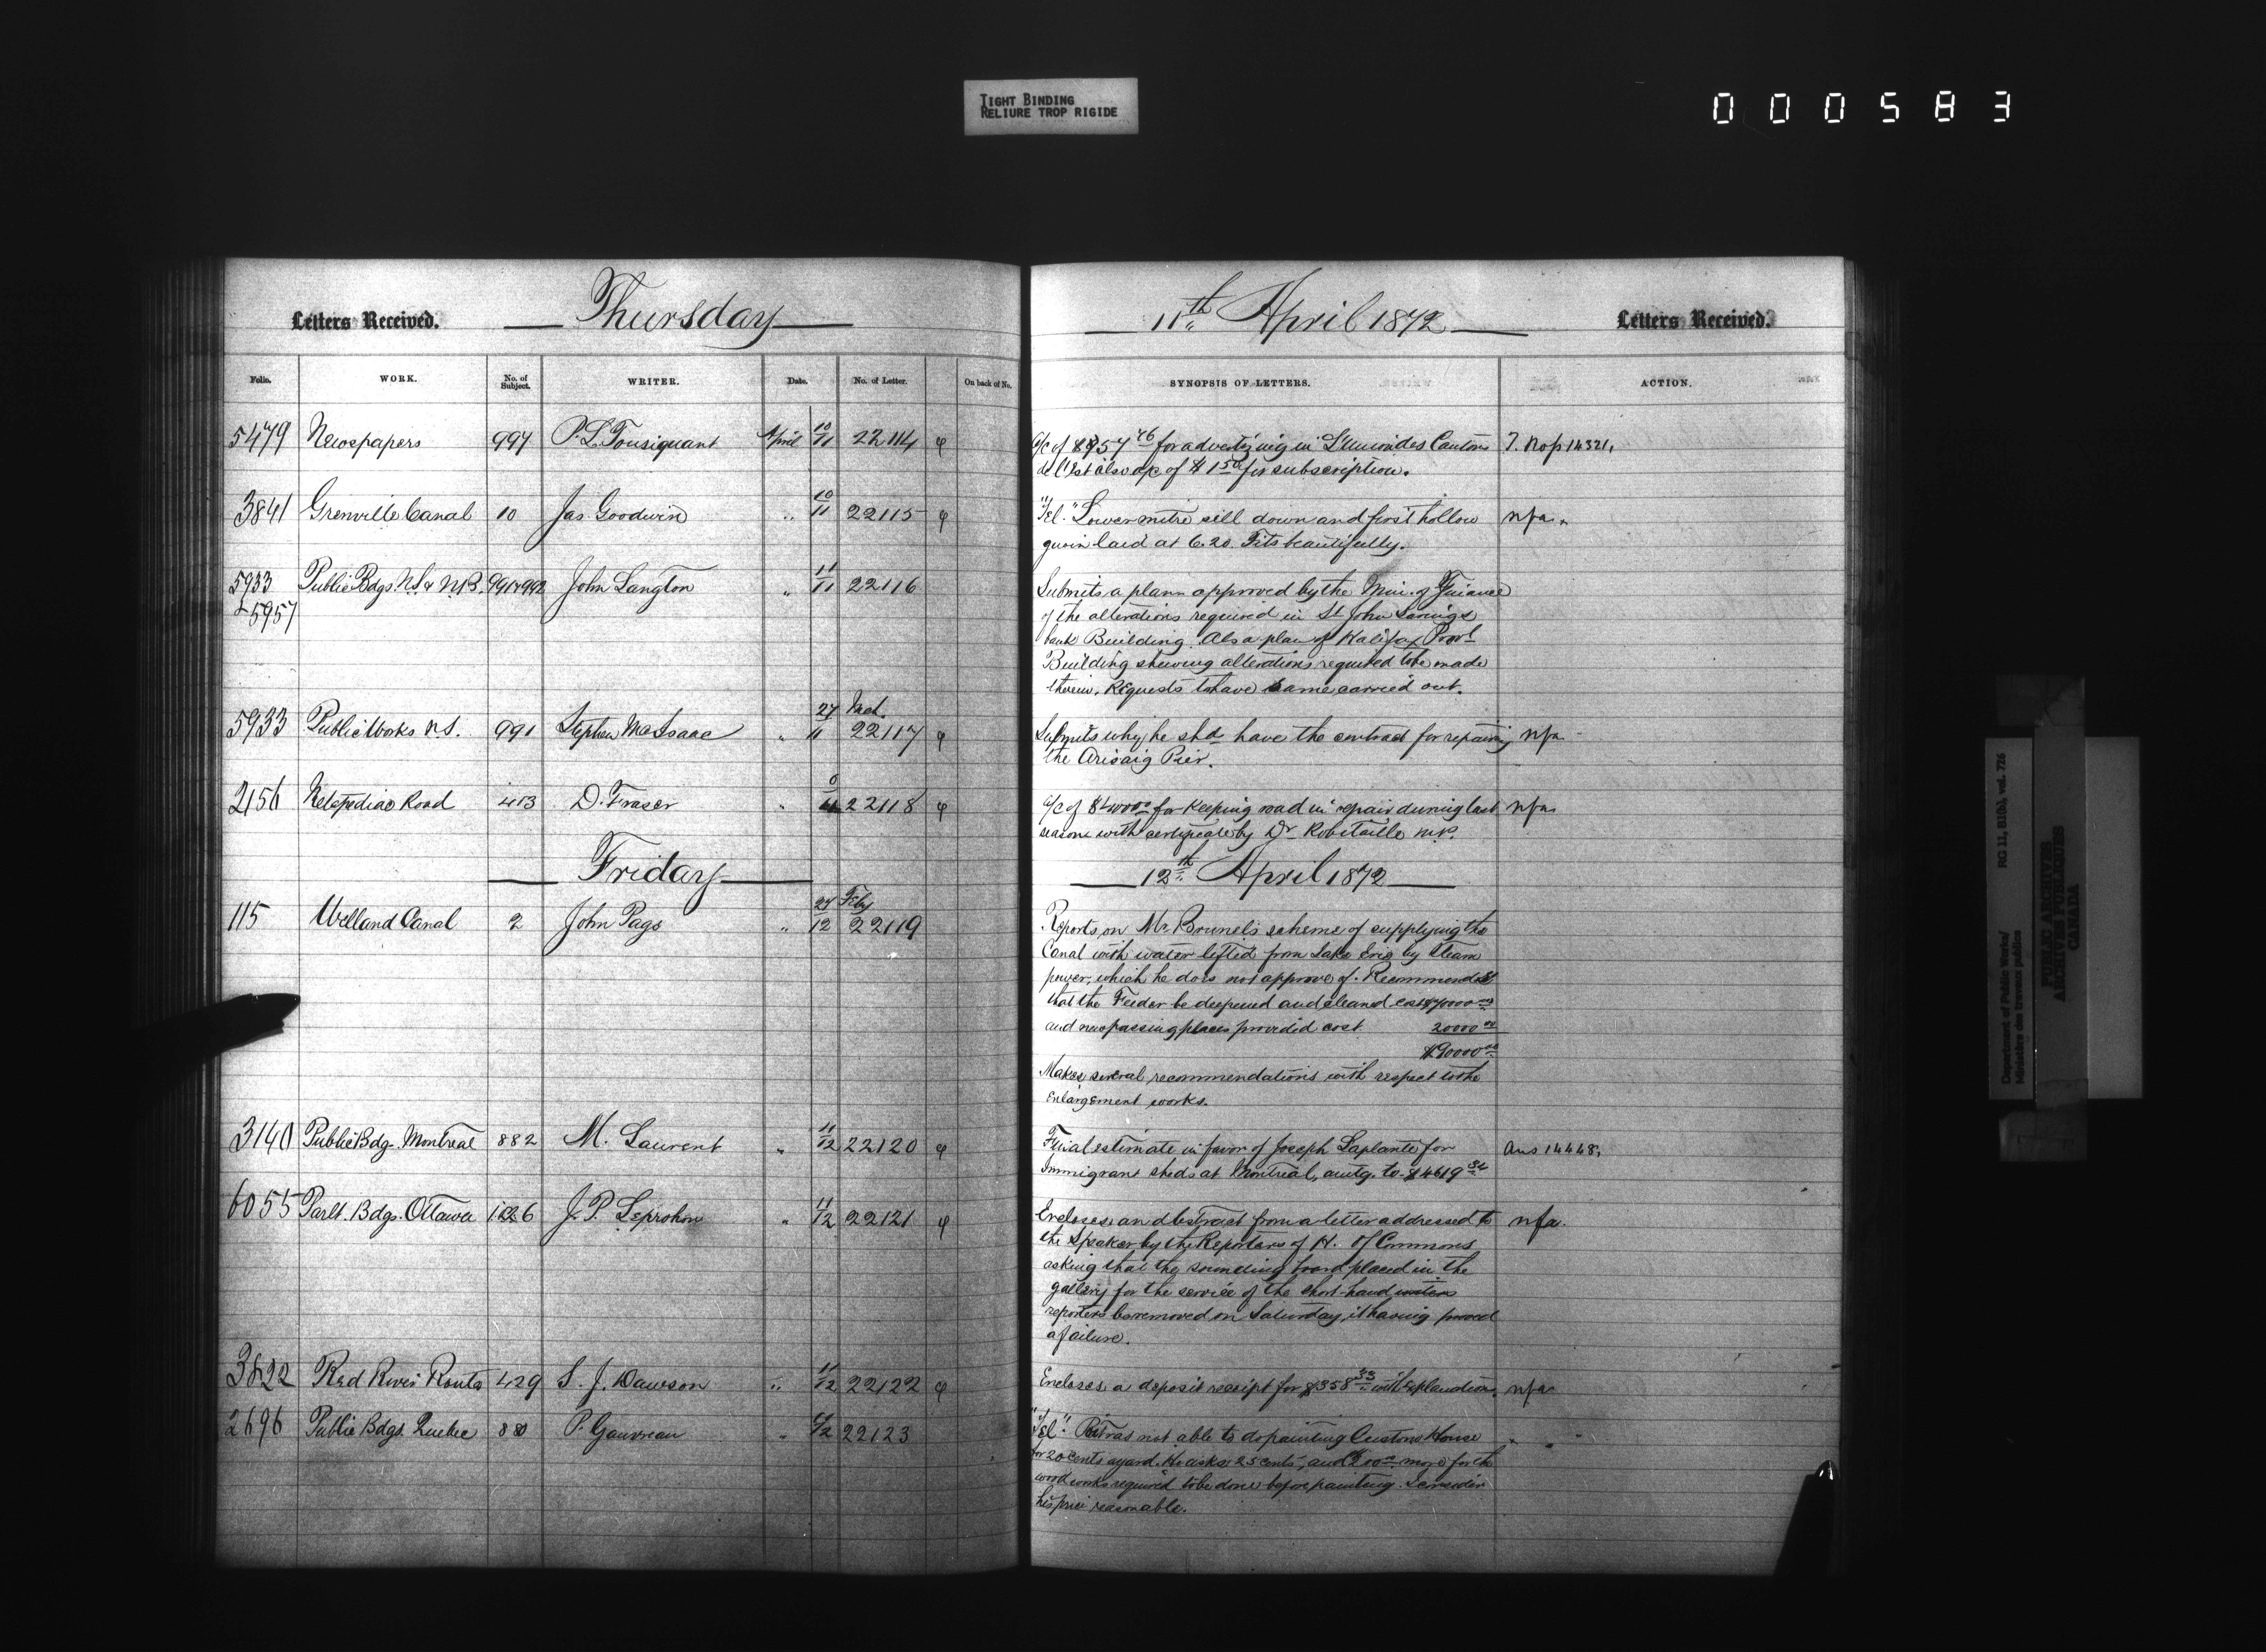 TIGHT BINDING
RELIURE TROP RIGIDE
000583
Letters Received. Thursday
Folio. WORK. No. of Subject. WRITER. Date. No. of Letter. On back of No.
5479 Newspapers 997 P. L. Tousignant April 10/11 22114 φ
3841 Grenville Canal 10 Jas Goodwin " 10/11 22115 φ
5933 Public Bdgs. N.S. & N.B. 991 & 992 John Langton " 11/11 22116
& 5957
27 Mch.
5933 Public Works N.S. 991 Stephen McIsaac " 11 22117 φ
2156 Metapediac Road 413 D. Fraser " 22118 φ
Friday
27 Feby
115 Welland Canal 2 John Page " 12 22119
3140 Public Bdg. Montreal 882 M. Laurent " 11/12 22120 φ
6055 Parlt. Bdgs. Ottawa J. P. Leprohon " 11/12 22121 φ
3822 Red River Route 429 S. J. Dawson " 11/12 22122 φ
2696 Public Bdgs. Quebec 880 P. Gauvreau " 22123
11th April 1872 Letters Received.
SYNOPSIS OF LETTERS. ACTION.
a/c of 76 for advertizing in L'Union des Cantons T. Nop 14321.
de l'Est also a/c of $1 50 for subscription.
"Tel." Lower mitre sill down and first hollow nfa.
quoin laid at 6.20. Fits beautifully.
Submits a plan approved by the Min. of Finance
of the alterations required in St John Savings
bank Building. Also a plan of Halifax Provl
Building shewing alterations required to be made
therein. Requests to have same carried out.
Submits why he shd have the contract for repairing nfa
the Arisaig Pier.
a/c of $400 00 for keeping road in repair during last nfa
season with certificate by Dr Robitaille M.P.
12th April 1872
Reports on Mr. Brunel's scheme of supplying the
Canal with water lifted from Lake Erie by steam
power, which he does not approve of. Recommends
that the Feeder be deepened and cleaned cost 70000 00
and new passing places provided cost 20000 00
$90000 00
Makes several recommendations with respect to the
Enlargement works.
Final estimate in favor of Joseph Laplante for Ans 14448.
Immigrant sheds at Montreal, amtg. to $4619 34
Encloses an abstract from a letter addressed to nfa.
the Speaker by the Reporters of H. of Commons
asking that the sounding board placed in the
gallery for the service of the short-hand writers
reporters be removed on Saturday, it having proved
a failure.
Encloses a deposit receipt for $358 33 with explanation. nfa
"Tel." Patras not able to do painting Custom House " "
for 20 cents a yard. He asks 25 cents, and more for the
wood works required to be done before painting. I consider
his price reasonable.
Department of Public Works/
Ministère des travaux publics
RG 11, B1(b), vol. 776
PUBLIC ARCHIVES
ARCHIVES PUBLIQUES
CANADA